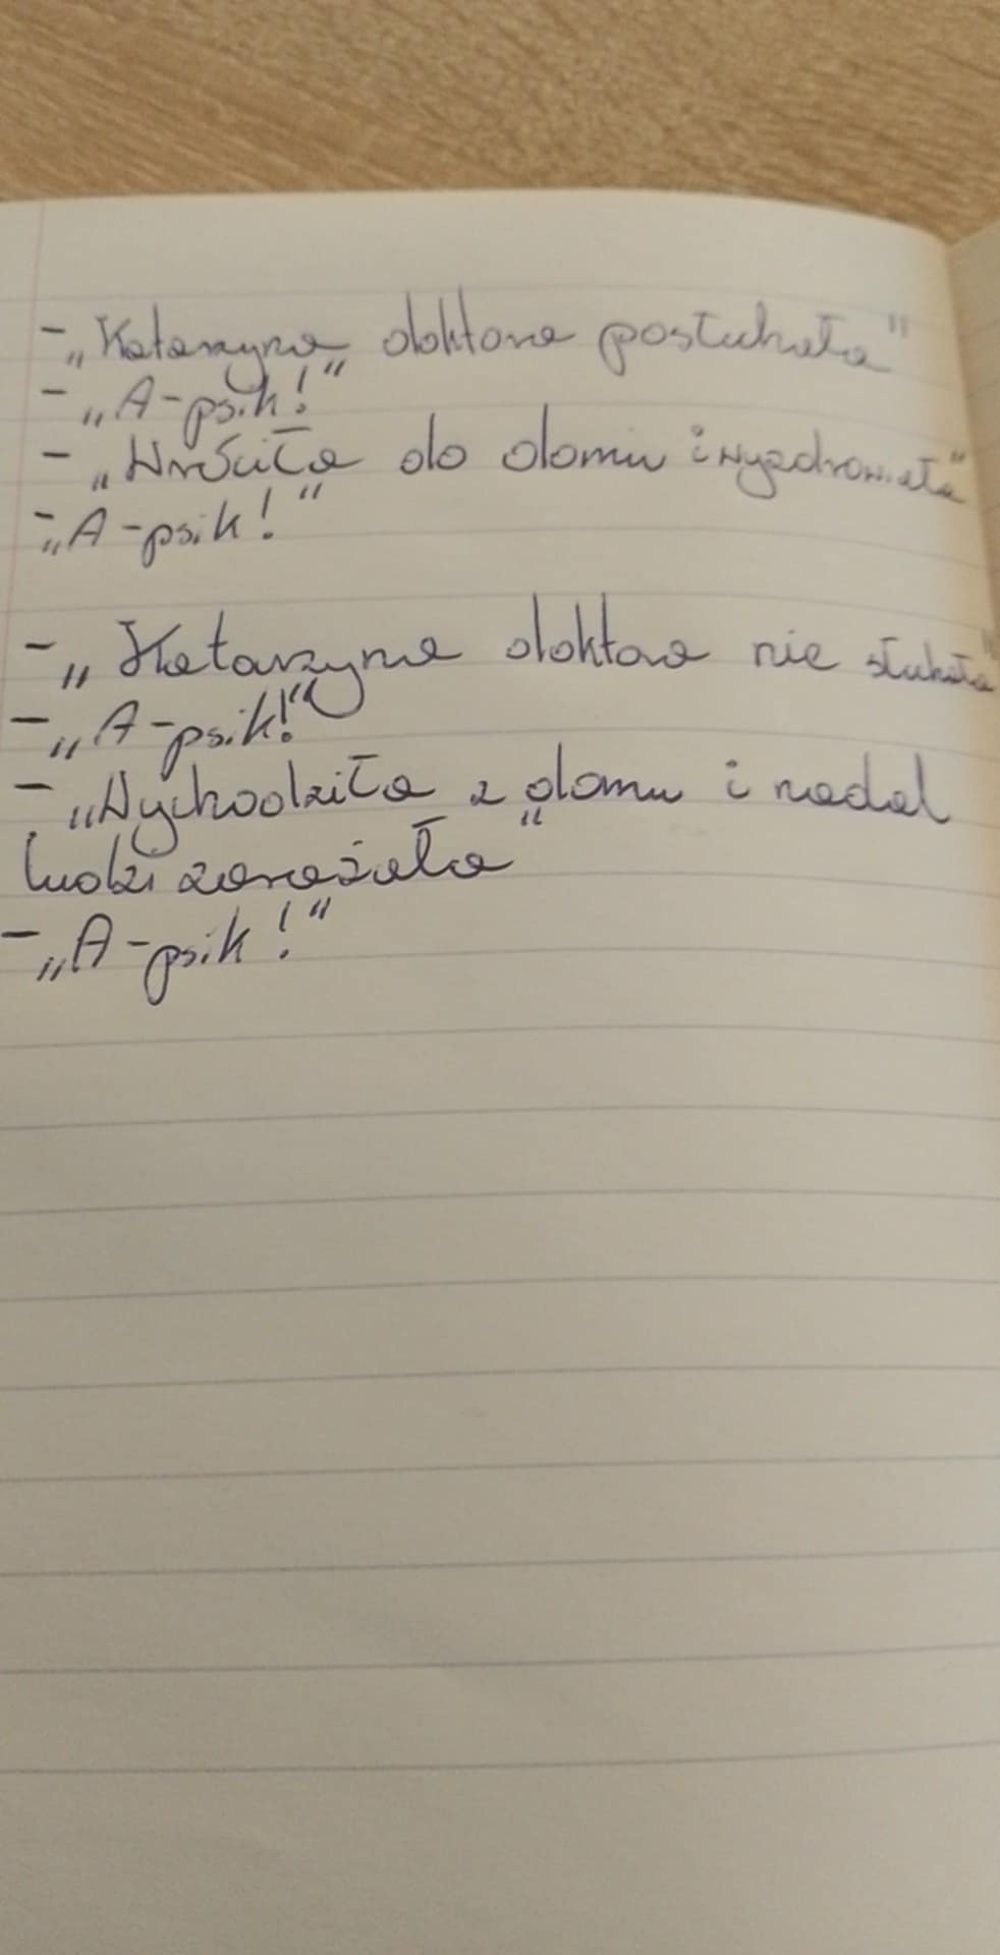 - „Katarzyna„ doktora postuchała"
- „A-psik!"
- „Wróciła do domu i wyzdrowiała"
- „A-psik!"
- „Katarzyna doktora nie słuchała"
- „A-psik!"
- „Wychodziła z domu i nadal
ludzi zarażała"
- „A-psik!"